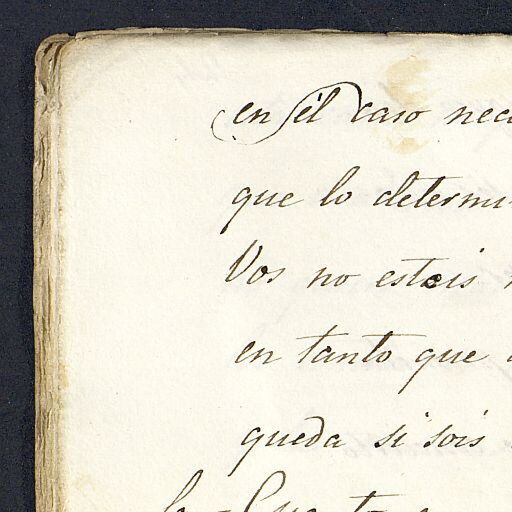 en el caso nece
que lo determi
Vos no estais
en tanto que
queda si sois